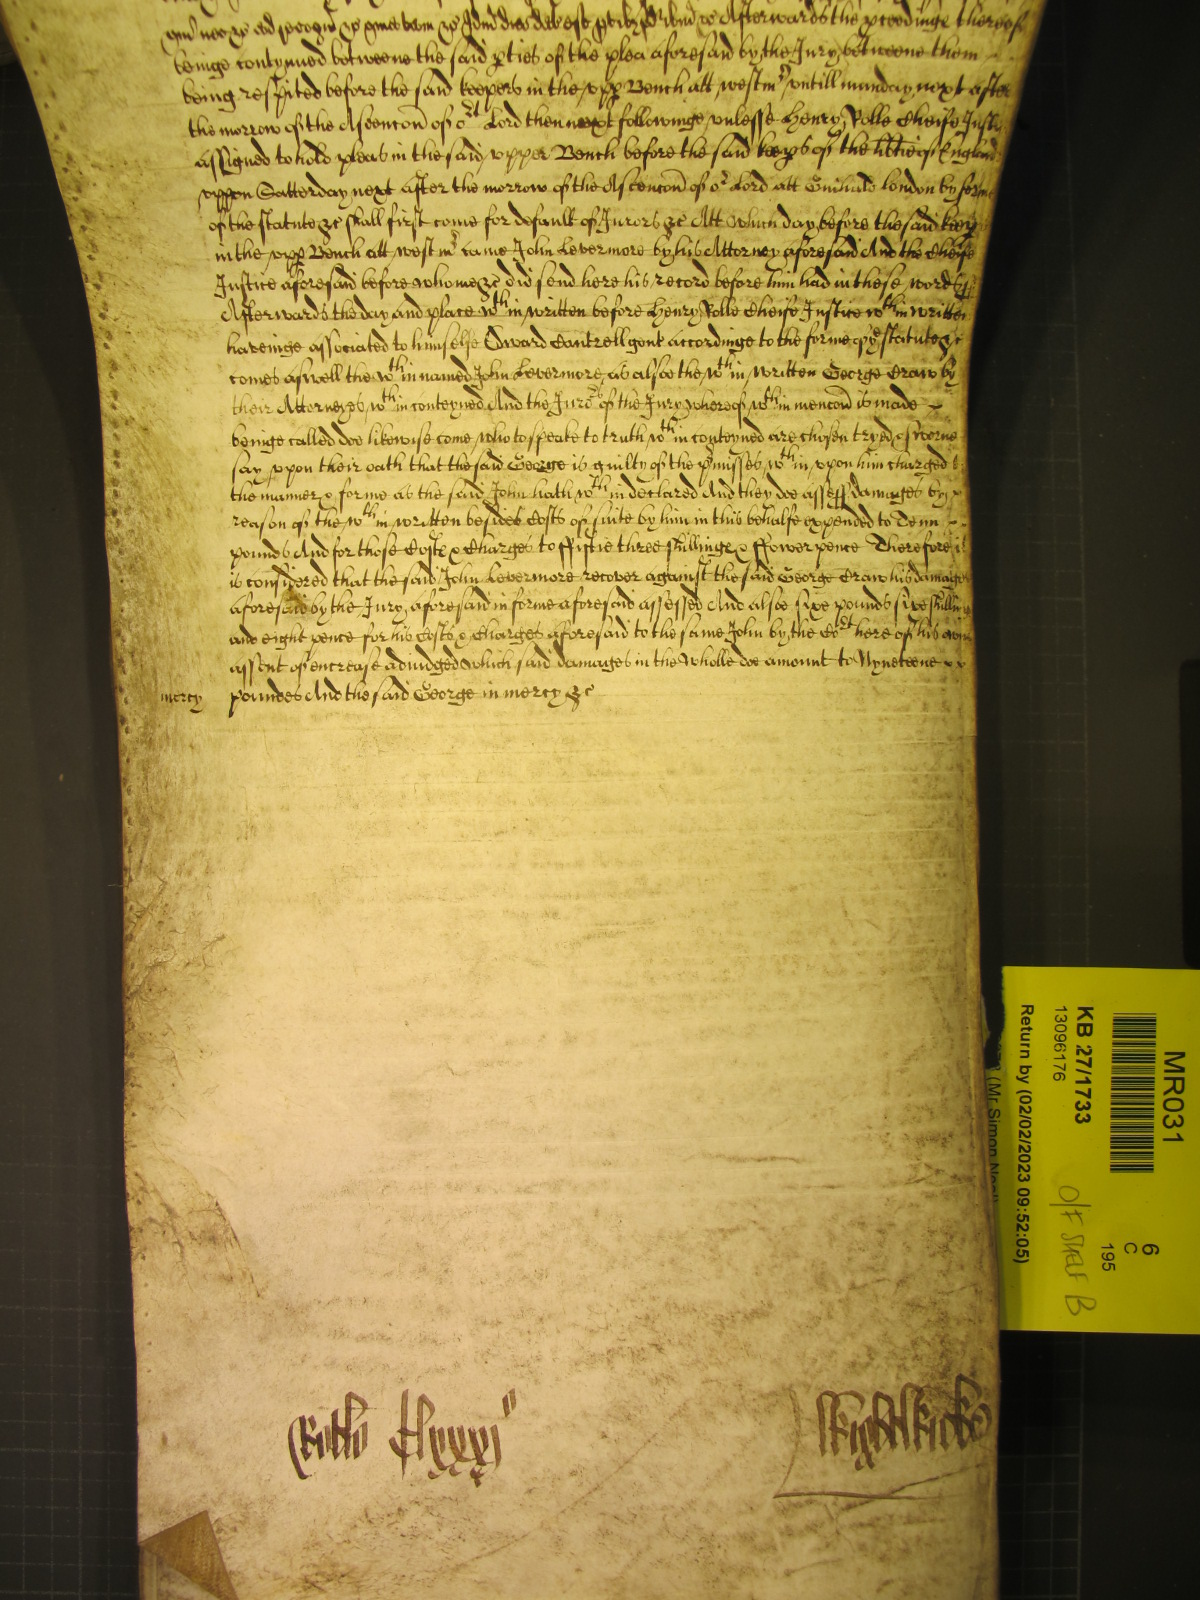 Afterwards the pceedinge thereof
beinge contynued betweene the said pties of the plea aforesaid by the Jury betweene them
being respited before the said keepers in the upp Bench att westmr untill munday next after
the morrow of the Ascencon of or Lord then next followinge unlesse Henry Rolle Cheife Justi
assigned to hold pleas in the said upper Bench before the said keeps of the libtie of England
uppon Satterday next after the morrow of the Ascencon of or Lord att Guihald london by forme
of the statute &c shall first come for default of Jurors &c Att which day before the said keeps
in the upp Bench att westmr came John Levermore by his Attorney aforesaid And the Cheife
Justice aforesaid before whome &c did send here his record before him had in these words
Afterwards the day and place wthin written before Henry Rolle Cheife Justice wthin written
haveinge associated to himselfe Edward Cantrell gent accordinge to the forme of ye statute &c
comes aswell the wthin named John Levermore as alsoe the wthin written George Craw by
their Attorneys wthin conteyned And the Juro of the Jury whereof wthin mencon is made
beinge called doe likewise come who to speake to truth wthin conteyned are chosen tryed & sworne
say upon their oath that the said George is guilty of the pmisses wthin upon him charged
the manner & forme as the said John hath wthin declared And they doe assesse damages by
reason of the wthin written besides Costs of suite by him in this behalfe expended to Tenn
pounds And for those Costs & Charges to ffiftie three shillinge & ffower pence Therefore it
is considered that the said John Levermore recover against the said George Craw his damages
aforesaid by the Jury aforesaid in forme aforesaid assessed And alsoe sixe pounds sixe shillings
and eight pence for his Costs & Charges aforesaid to the same John by the Cort here of his owne
assent of encrease adiudged which said damages in the wholle doe amount to Nyneteene
mercy poundes And the said George in mercy &c
Rotlo
MR031
6
C
195
KB 27/1733
13096176
O/F Shelf B
Return by (02/02/2023 09:52:05)
(Mr Simon